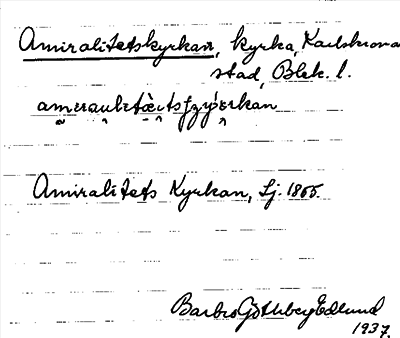 Amiralitetskyrkan, kyrka, Karlskrona
stad, Blek. l.
Amiralitets Kyrkan, Lj. 1865.
Barbro Göthberg Edlund
1937.